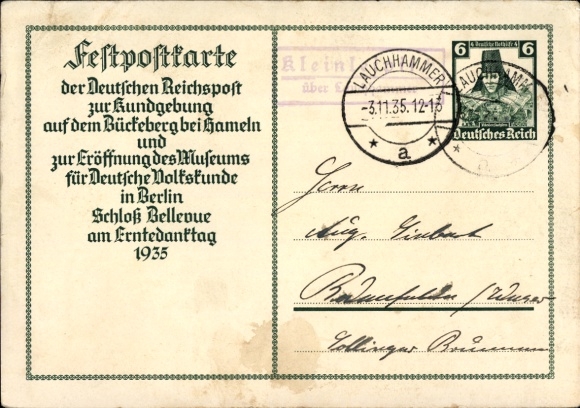 Festpostkarte
der Deutschen Reichspost
zur Kundgebung
auf dem Bückeberg bei Hameln
und
zur Eröffnung des Museums
für Deutsche Volkskunde
in Berlin
Schloß Bellevue
am Erntedanktag
1935
über
LAUCHHAMMER
-3.11.35.12-13
a
6 4 Deutsche Nothilfe 4 6
Deutsches Reich
LAUCHHAMMER
Herrn
Aug.
Bodenfelde /Weser
Sollinger Brunnen